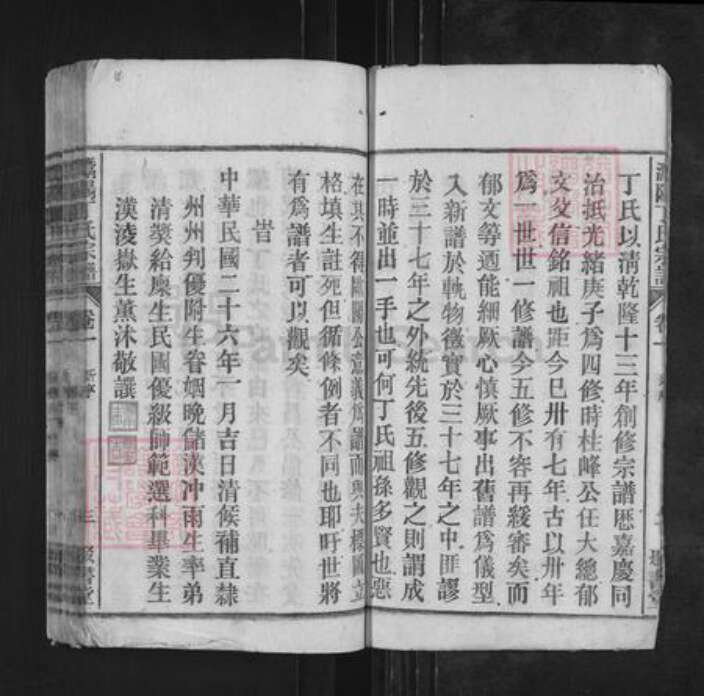 丁氏以清乾隆十三年創修宗譜厯嘉慶同
治抵光緒庚子爲四修時柱峰公任大總郁
文攵信銘祖也距今巳卅有七年古以卅年
爲一世世一修譜今五修不容再緩審矣而
郁文等迺能綑厥心慎厥事出舊譜爲儀型
入新譜於軌物徵實於三十七年之中匪謬
於三十七年之外統先後五修觀之則謂成
一時並出一手也可何丁氏祖孫多賢也惡
在其不得歐陽公意義爲譜而與夫標圖立
格填生註死但循條倒者不同也耶吁世將
有爲譜者可以觀矣
旹
中華民國二十六年一月吉日清候補直隸
州州判優附生眷姻晚儲漢冲雨生率弟
清獎給廩生民國優級師範選科畢業生
漢淩嶽生薰沐敬譔
丁氏宗譜
卷一
新序
三